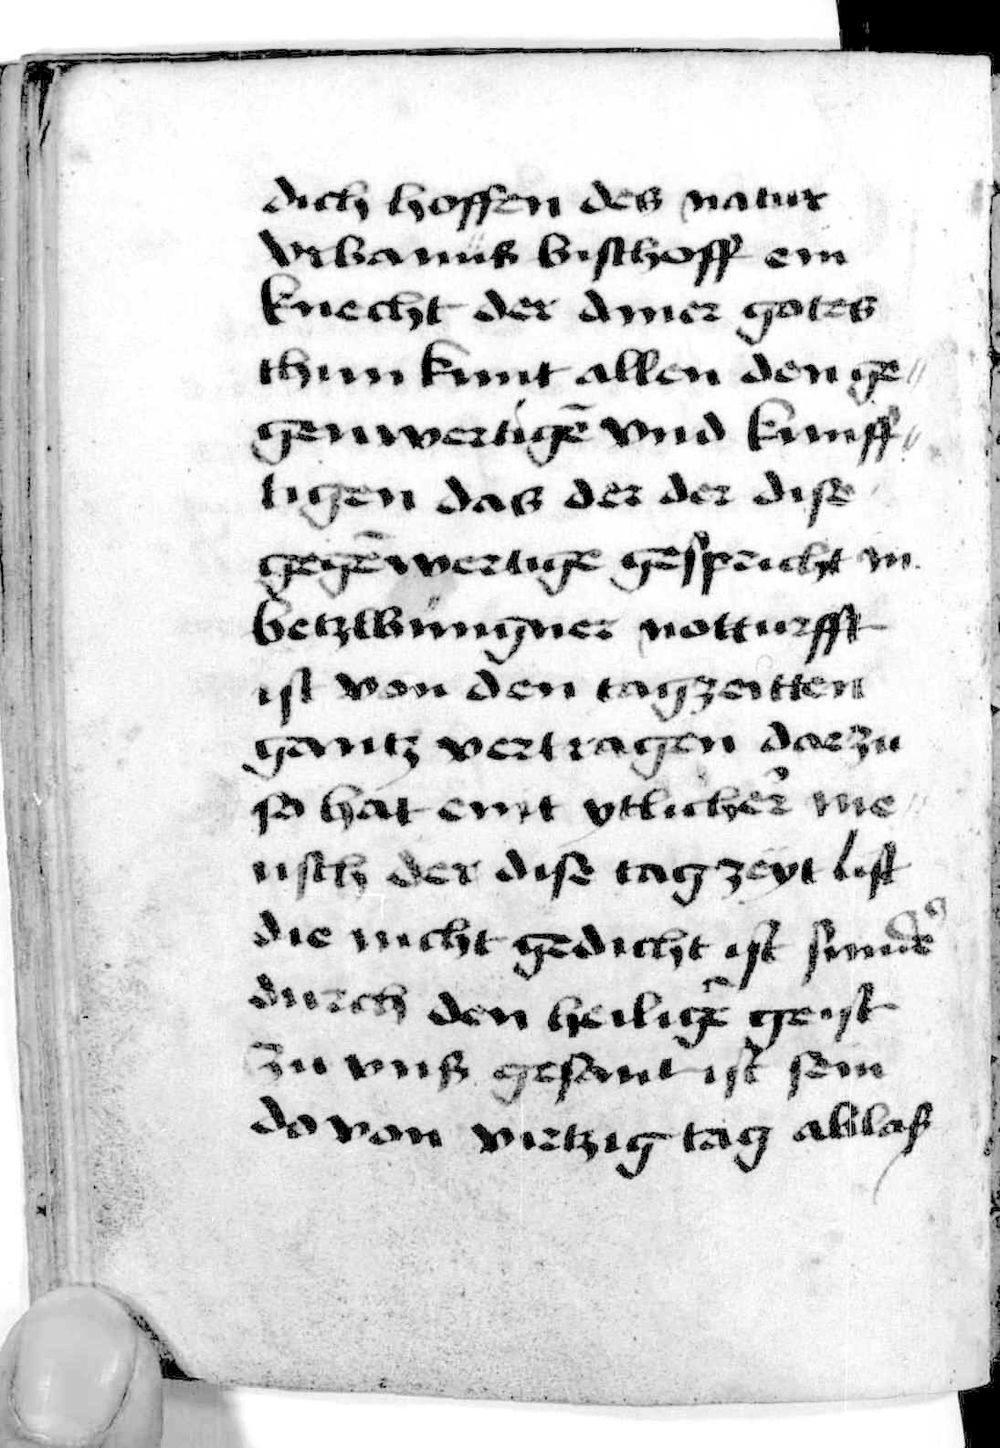 dich hoffen des natur
Vrbanuß bischoff ein
knecht der diner gotes
thun kunt allen den ge„
genwertigē vnd kunff„
tigen das der der dise
gegēwertige gespricht in
notturfft
ist von den tagzeitten
gantz vertragen dorzu
so hat eint ytlicher me„
nsch der dise tagzeyt list
die nicht gedicht ist sunder
durch den heiligē geist
zu vnß gesant ist sein
do von viertzig tag ablaß